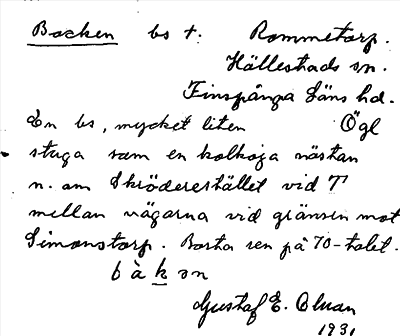 Backen bs t. Rommetorp.
Hällestads sn.
Finspånga Läns hd.
En bs, mycket liten Ögl
stuga som en kolkoja nästan
n. om Skröderestället vid T
mellan vägarna vid gränsen mot
Simonstorp. Borta ren på 70-talet.
b à k ən
Gustaf E. Olson
1931